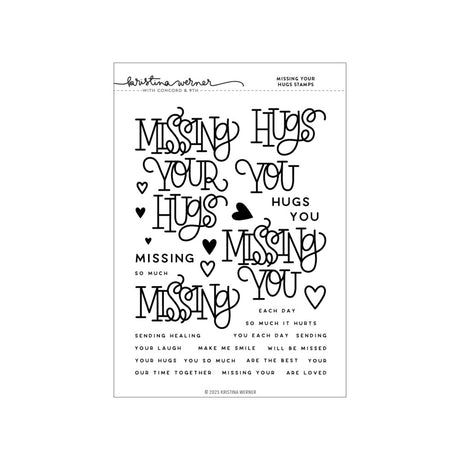 kristina werner
WITH CONCORD & 9TH
MISSING YOUR
HUGS STAMPS
MISSING
YOUR
HUGS
HUGS
YOU
HUGS
YOU
MISSING
SO MUCH
MISSING
YOU
MISSING
EACH DAY
SO MUCH IT HURTS
SENDING HEALING YOU EACH DAY SENDING
YOUR LAUGH MAKE ME SMILE WILL BE MISSED
YOUR HUGS YOU SO MUCH ARE THE BEST YOUR
OUR TIME TOGETHER MISSING YOUR ARE LOVED
© 2025 KRISTINA WERNER